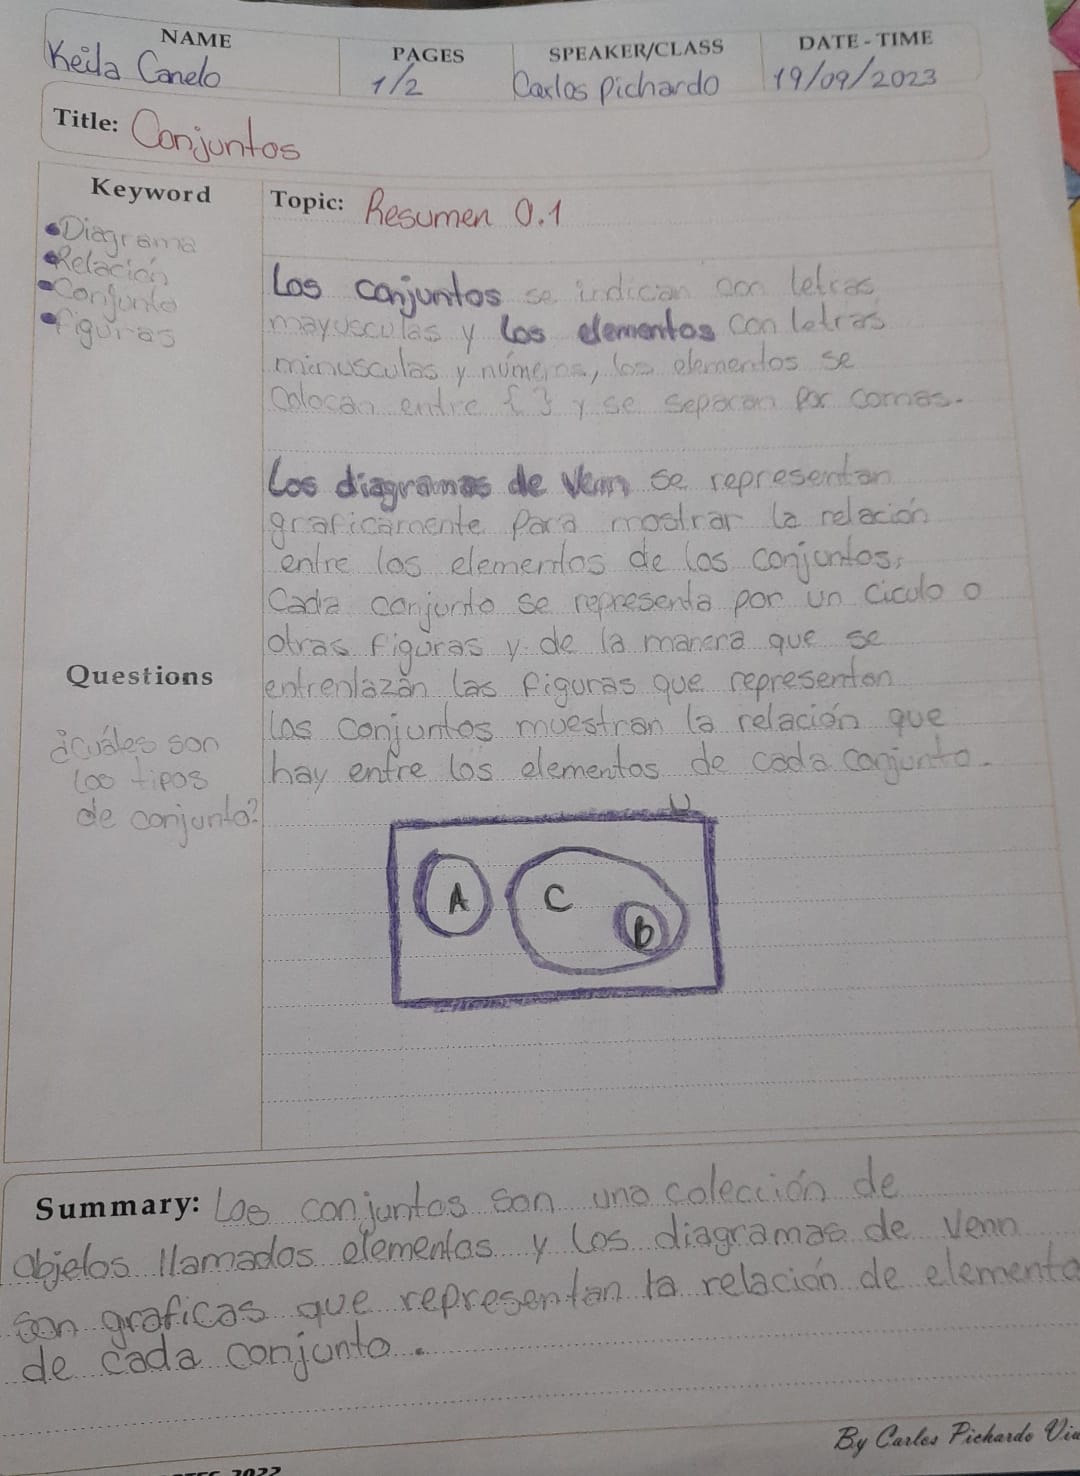 NAME
Keila Canelo
PAGES
1/2
SPEAKER/CLASS
Carlos Pichardo
DATE - TIME
19/09/2023
Title: Conjuntos
Keyword
•Diagrama
•Relación
•Conjunto
•figuras
Questions
¿cuáles son
los tipos
de conjunto?
Topic: Resumen 0.1
Los conjuntos se indican con letras
mayusculas y los elementos con letras
minusculas y números, los elementos se
Colocan entre { } y se separan por comas.
Los diagramas de Venn se representan
graficamente para mostrar la relación
entre los elementos de los conjuntos,
Cada conjunto se representa por un ciculo o
otras figuras y de la manera que se
entrenlazán las figuras que representan
los conjuntos muestran la relación que
hay entre los elementos de cada conjunto.
U
A C
B
Summary: Los conjuntos son una colección de
objetos llamados elementos y los diagramas de Venn
son graficas que representan la relación de elemento
de cada conjunto.
By Carlos Pichardo
2022